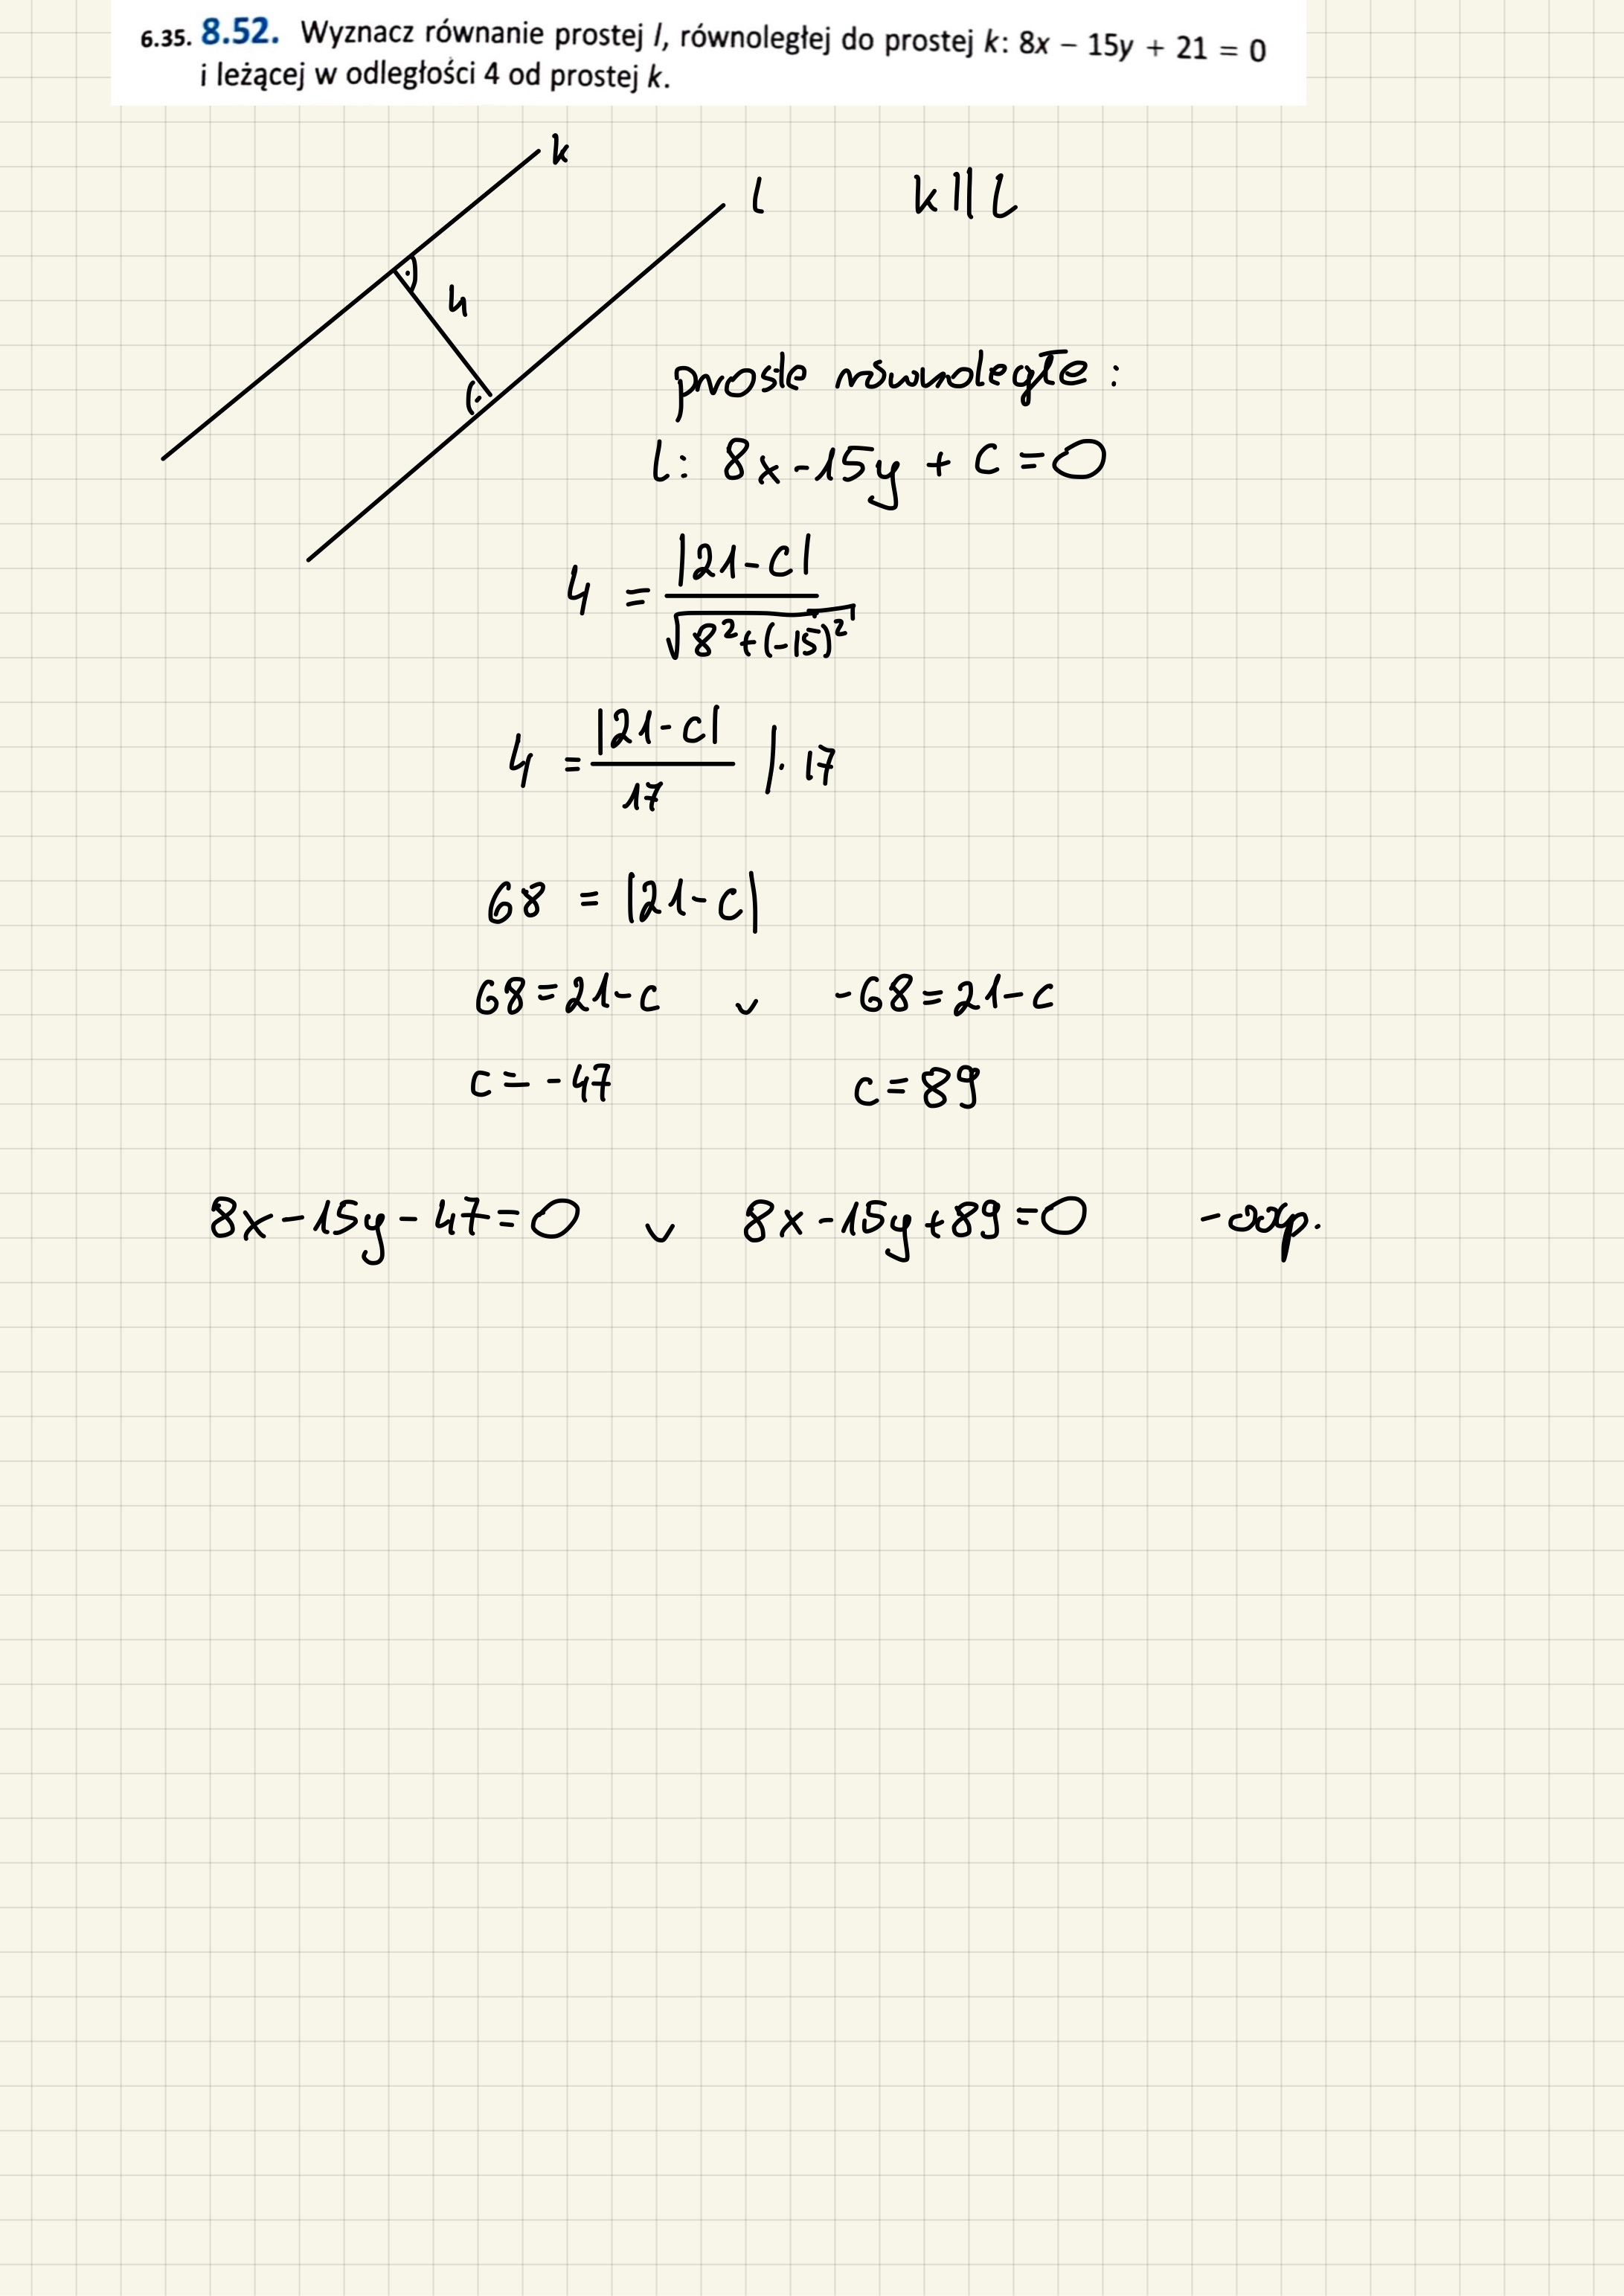 6.35. 8.52. Wyznacz równanie prostej l, równoległej do prostej k: 8x – 15y + 21 = 0
i leżącej w odległości 4 od prostej k.
k
l k || l
4
proste równoległe:
l: 8x-15y + C = 0
4 = |21-C| / √(8²+(-15)²)
4 = |21-c| / 17 |· 17
68 = |21-c|
68=21-c ∨ -68=21-c
c = -47 c = 89
8x-15y-47=0 ∨ 8x-15y+89=0 - odp.